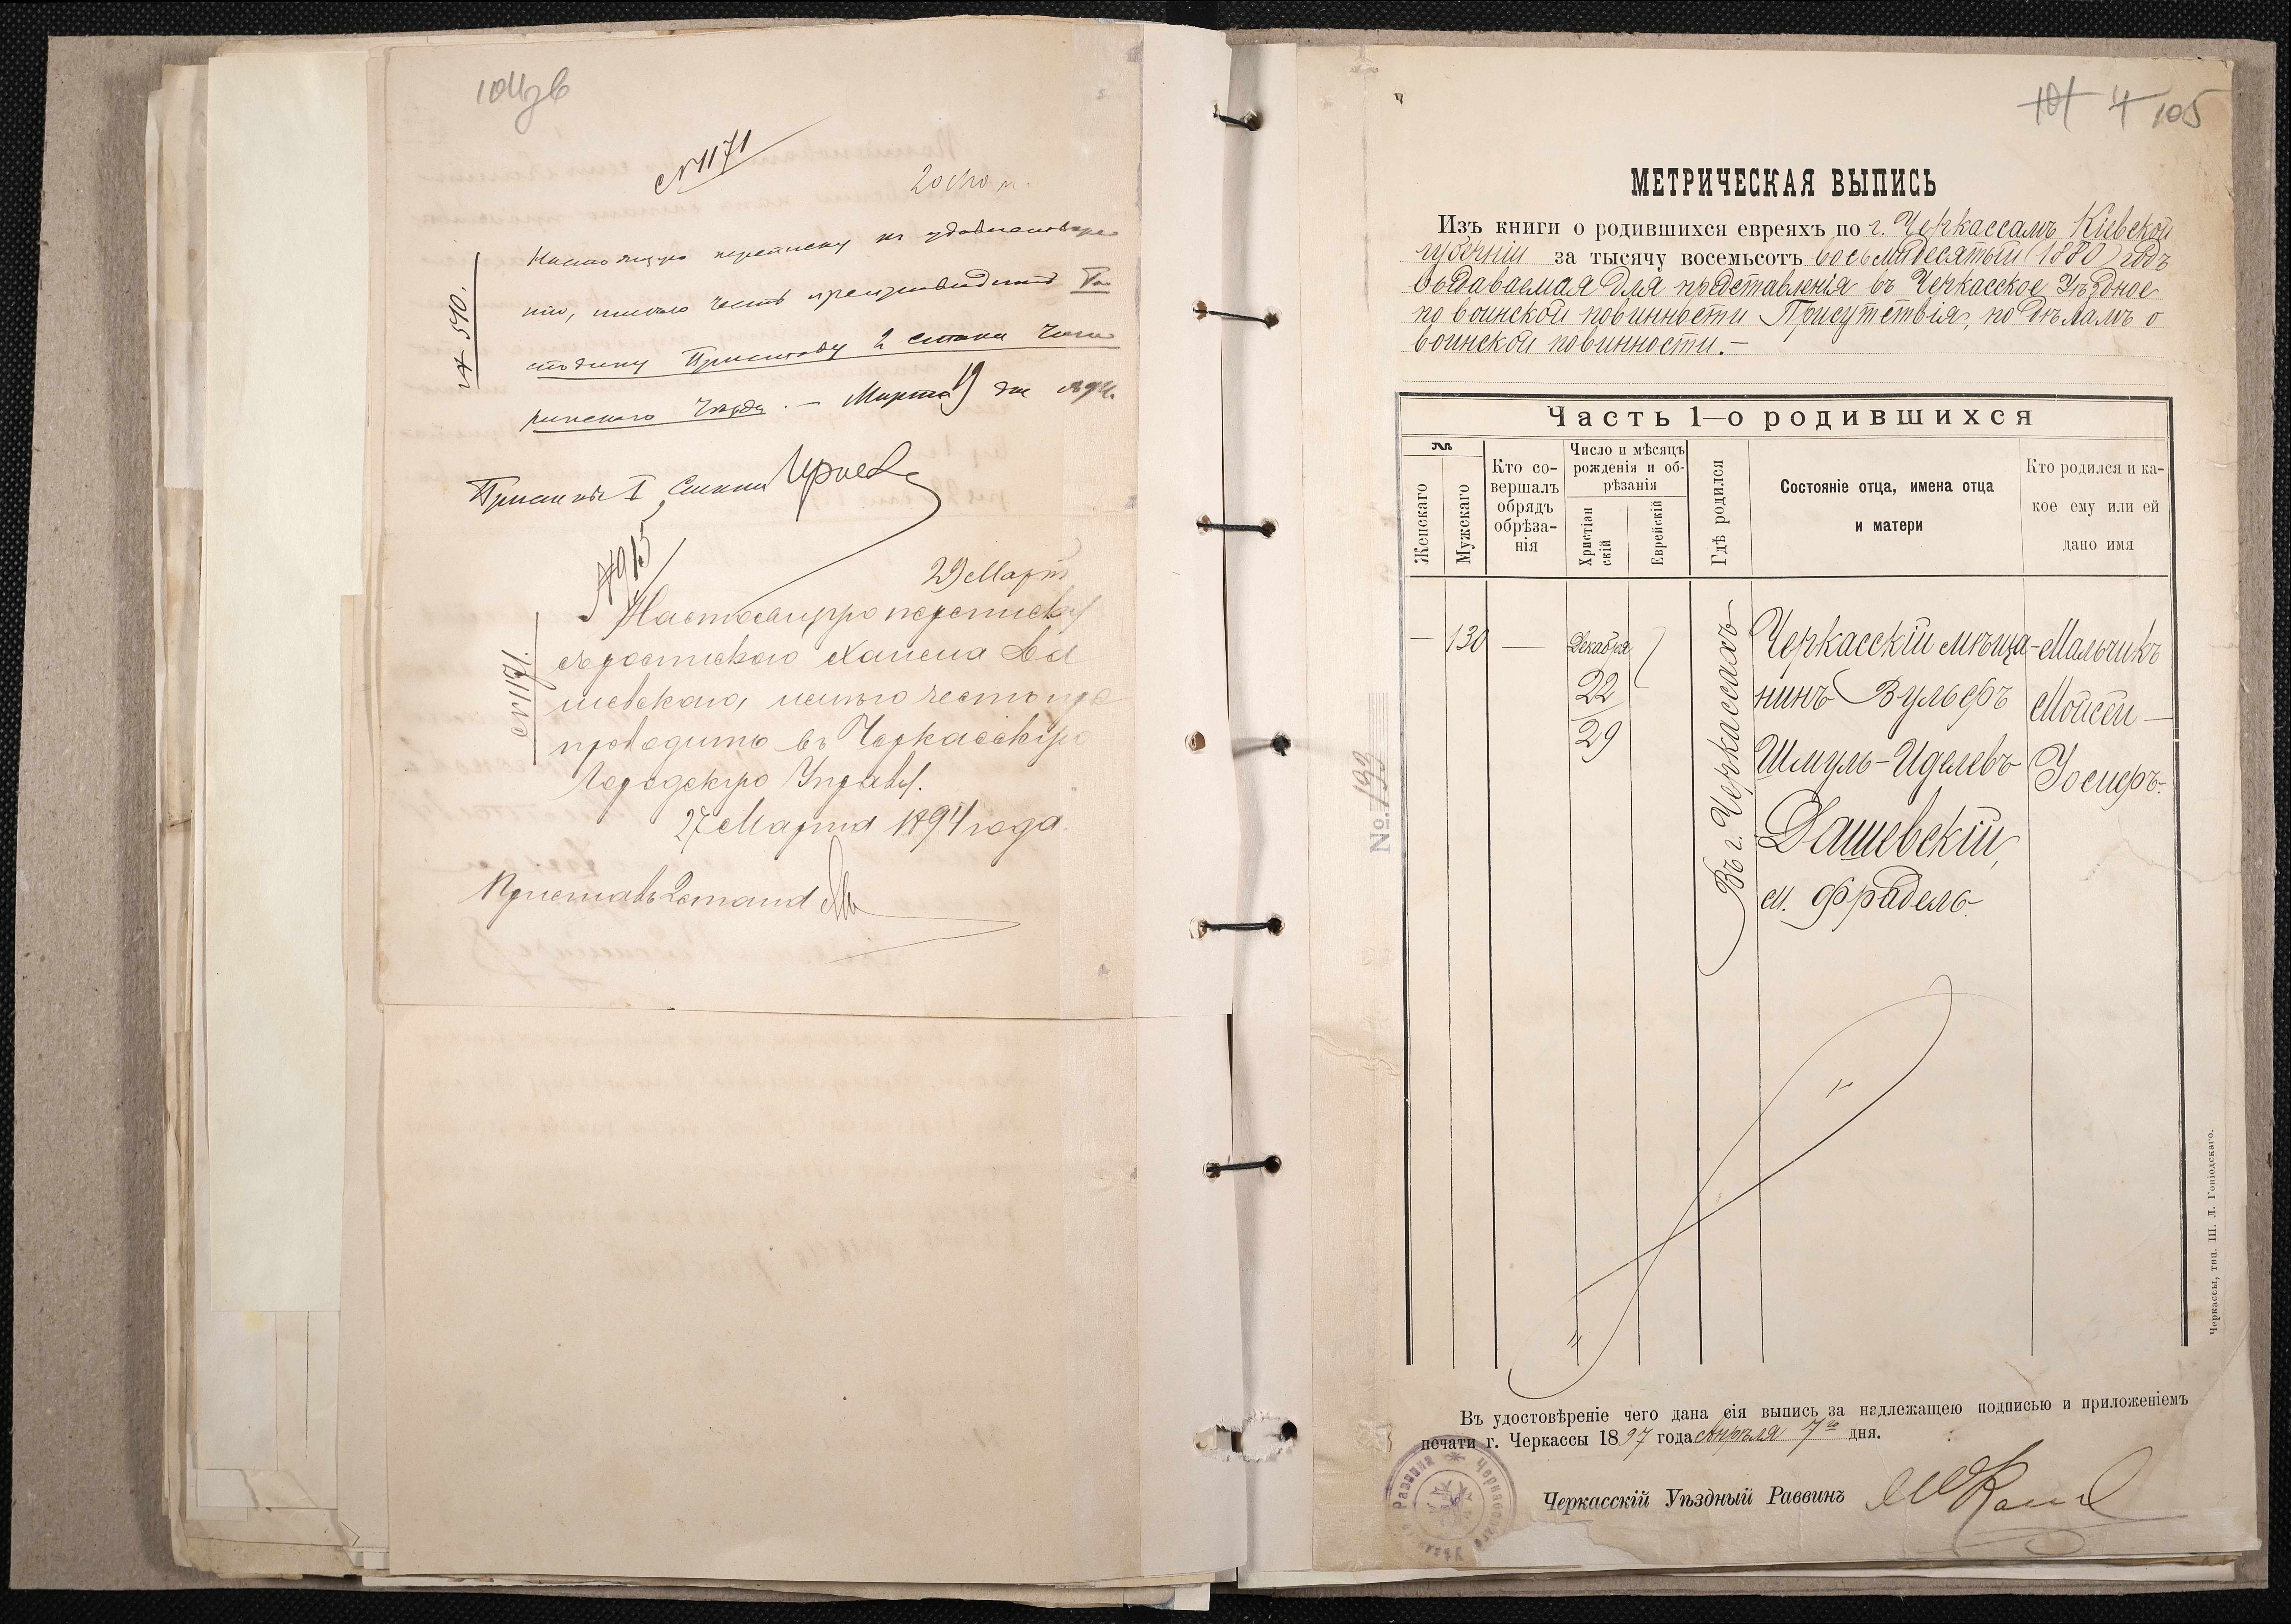 № 1171
№ 510.
Настоящую переписку по удовлетворе
нію, имѣю честь препроводить Го
сподину Приставу 2 стана Чиги
ринскаго уѣзда. — Марта 19 дня
Приставъ I Стана
№ 915
29 Март
№ 1171.
Настоящую переписку
имѣю честь пре
проводить въ Черкасскую
Городскую Управу.
27 Марта 1894 года.
Приставъ 2 стана
101 4 105
МЕТРИЧЕСКАЯ ВЫПИСЬ
Изъ книги о родившихся евреяхъ по г. Черкассамъ Кіевской
губерніи за тысячу восемьсотъ восьмидесятый (1880) годъ
выдаваемая для представленія въ Черкасское Уѣздное
по воинской повинности Присутствія, по дѣламъ о
воинской повинности. —
Часть 1—о родившихся
№№
Женскаго
Мужскаго
Кто со-
вершалъ
обрядъ
обрѣза-
нія
Число и мѣсяцъ
рожденія и об-
рѣзанія
Христіан
скій
Еврейскій
Гдѣ родился
Состояніе отца, имена отца
и матери
Кто родился и ка-
кое ему или ей
дано имя
— 130 — Декабря
22
29
Въ г. Черкассахъ
Черкасскій мѣща-
нинъ Вульфъ
Шмуль-Иделевъ
Дашевскій,
м. Фрадель.
Мальчикъ
Мойсей —
Іосифъ.
No. 193
Въ удостовѣреніе чего дана сія выпись за надлежащею подписью и приложеніемъ
печати г. Черкассы 1897 года Апрѣля 7го дня.
Черкасскій Уѣздный Раввинъ
Черкасскаго Уѣзд Раввина
Черкассы, тип. Ш. Л. Гоніодскаго.